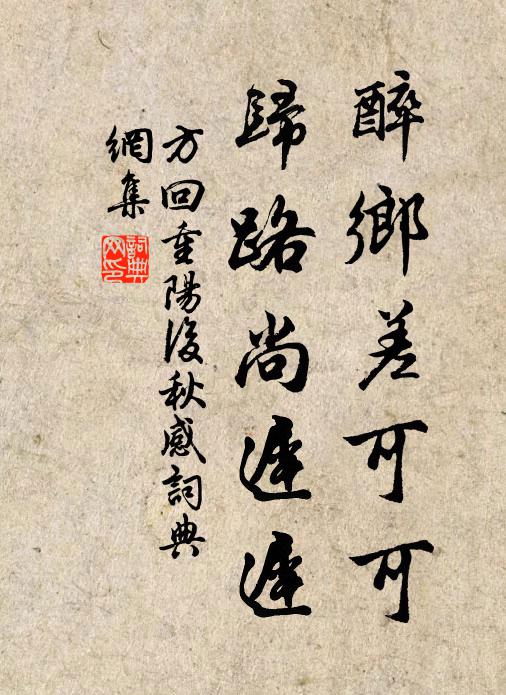 醉鄉差可可
歸路尚遲遲
方回重陽後秋感詞典
網集
詞典
网印